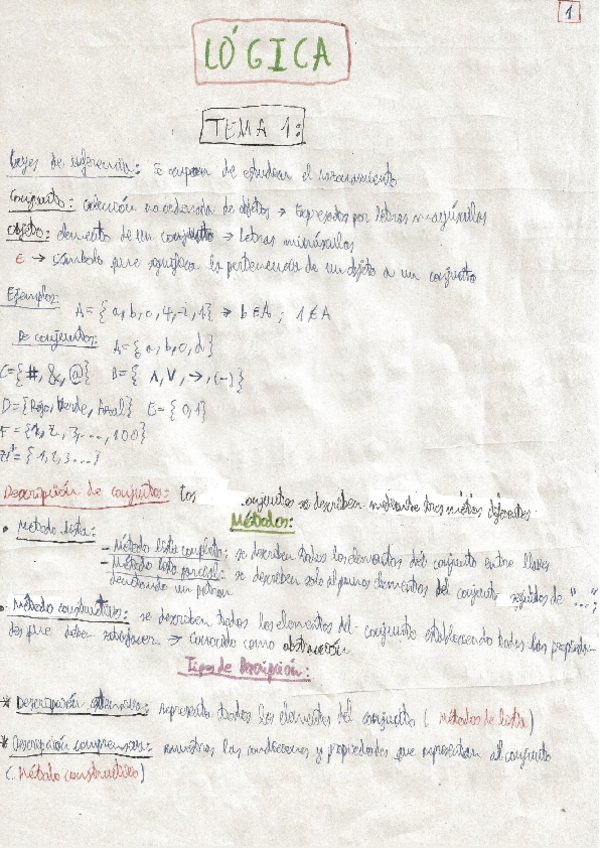 1
LÓGICA
TEMA 1:
Leyes de inferencia: Se ocupan de estudiar el razonamiento
Conjunto: colección no ordenada de objetos → Expresados por letras mayúsculas
Objeto: elemento de un conjunto → Letras minúsculas
∈ → símbolo que significa la pertenencia de un objeto a un conjunto
Ejemplos:
A = { a, b, c, 4, -2, 1 } → b ∈ A ; 1 ∉ A
De conjuntos: A = { a, b, c, d }
C = { #, &, @ } B = { ∧, ∨, →, (-) }
D = { Rojo, Verde, Azul } E = { 0, 1 }
F = { 1, 2, 3, ..., 100 }
= { 1, 2, 3 ... }
Descripción de conjuntos: Los conjuntos se describen mediante tres diferentes
Métodos:
• Método lista:
- Método lista completo: se describen todos los elementos del conjunto entre llaves
- Método lista parcial: se describen solo algunos elementos del conjunto seguidos de "..."
denotando un patrón
• Método constructivo: se describen todos los elementos del conjunto estableciendo todas las
que deben satisfacer → conocido como abstracción
Tipos de Descripción:
* Descripción extensiva: representa todos los elementos del conjunto ( Métodos de lista )
* Descripción comprensiva: muestras las condiciones y propiedades que representan al conjunto
( Método constructivo )